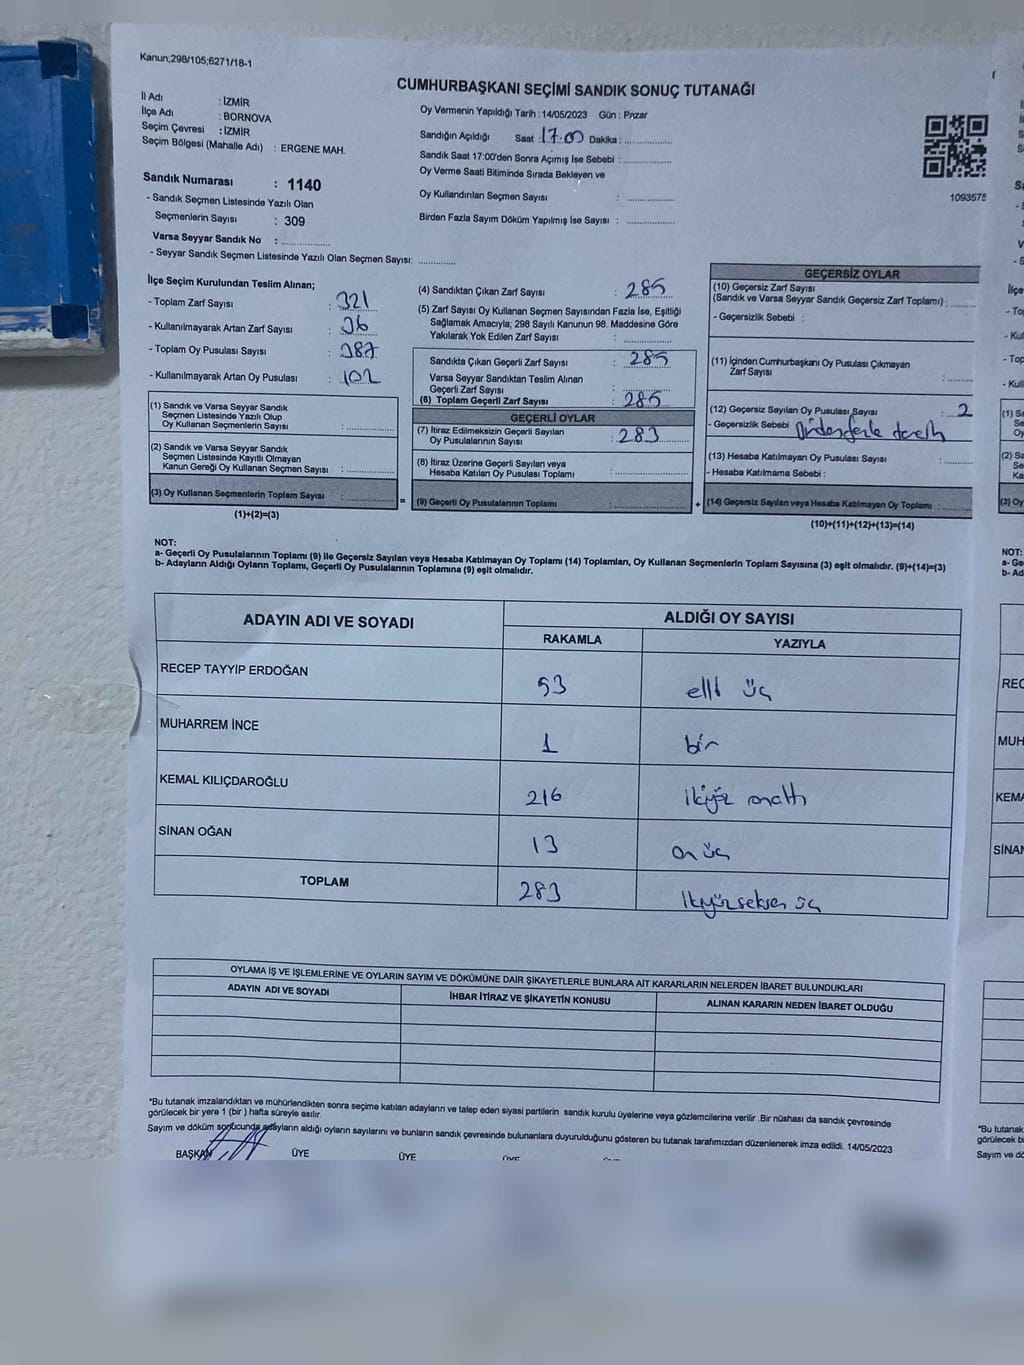 Kanun;298/105;6271/18-1
CUMHURBAŞKANI SEÇİMİ SANDIK SONUÇ TUTANAĞI
İl Adı : İZMİR
İlçe Adı : BORNOVA
Seçim Çevresi : İZMİR
Seçim Bölgesi (Mahalle Adı) : ERGENE MAH.
Sandık Numarası : 1140
- Sandık Seçmen Listesinde Yazılı Olan
Seçmenlerin Sayısı : 309
Varsa Seyyar Sandık No :
- Seyyar Sandık Seçmen Listesinde Yazılı Olan Seçmen Sayısı:
Oy Vermenin Yapıldığı Tarih : 14/05/2023 Gün : Pazar
Sandığın Açıldığı Saat : 17.00 Dakika :
Sandık Saat 17:00'den Sonra Açımış İse Sebebi :
Oy Verme Saati Bitiminde Sırada Bekleyen ve
Oy Kullandırılan Seçmen Sayısı :
Birden Fazla Sayım Döküm Yapılmış İse Sayısı :
1093575
İlçe Seçim Kurulundan Teslim Alınan;
- Toplam Zarf Sayısı : 321
- Kullanılmayarak Artan Zarf Sayısı : 36
- Toplam Oy Pusulası Sayısı : 387
- Kullanılmayarak Artan Oy Pusulası : 102
(1) Sandık ve Varsa Seyyar Sandık
Seçmen Listesinde Yazılı Olup
Oy Kullanan Seçmenlerin Sayısı :
(2) Sandık ve Varsa Seyyar Sandık
Seçmen Listesinde Kayıtlı Olmayan
Kanun Gereği Oy Kullanan Seçmen Sayısı :
(3) Oy Kullanan Seçmenlerin Toplam Sayısı :
(1)+(2)=(3)
(4) Sandıktan Çıkan Zarf Sayısı : 285
(5) Zarf Sayısı Oy Kullanan Seçmen Sayısından Fazla İse, Eşitliği
Sağlamak Amacıyla; 298 Sayılı Kanunun 98. Maddesine Göre
Yakılarak Yok Edilen Zarf Sayısı :
Sandıkta Çıkan Geçerli Zarf Sayısı : 285
Varsa Seyyar Sandıktan Teslim Alınan
Geçerli Zarf Sayısı :
(6) Toplam Geçerli Zarf Sayısı : 285
GEÇERLİ OYLAR
(7) İtiraz Edilmeksizin Geçerli Sayılan
Oy Pusulalarının Sayısı : 283
(8) İtiraz Üzerine Geçerli Sayılan veya
Hesaba Katılan Oy Pusulaları Toplamı :
= (9) Geçerli Oy Pusulalarının Toplamı :
GEÇERSİZ OYLAR
(10) Geçersiz Zarf Sayısı
(Sandık ve Varsa Seyyar Sandık Geçersiz Zarf Toplamı) :
- Geçersizlik Sebebi :
(11) İçinden Cumhurbaşkanı Oy Pusulası Çıkmayan
Zarf Sayısı :
(12) Geçersiz Sayılan Oy Pusulası Sayısı : 2
- Geçersizlik Sebebi Birden fazla tercih
(13) Hesaba Katılmayan Oy Pusulası Sayısı :
- Hesaba Katılmama Sebebi :
+ (14) Geçersiz Sayılan veya Hesaba Katılmayan Oy Toplamı :
(10)+(11)+(12)+(13)=(14)
NOT:
a- Geçerli Oy Pusulalarının Toplamı (9) ile Geçersiz Sayılan veya Hesaba Katılmayan Oy Toplamı (14) Toplamları, Oy Kullanan Seçmenlerin Toplam Sayısına (3) eşit olmalıdır. (9)+(14)=(3)
b- Adayların Aldığı Oyların Toplamı, Geçerli Oy Pusulalarının Toplamına (9) eşit olmalıdır.
ADAYIN ADI VE SOYADI ALDIĞI OY SAYISI
RAKAMLA YAZIYLA
RECEP TAYYİP ERDOĞAN 53 elli üç
MUHARREM İNCE 1 bir
KEMAL KILIÇDAROĞLU 216 ikiyüz onaltı
SİNAN OĞAN 13 on üç
TOPLAM 283 ikiyüzseksen üç
OYLAMA İŞ VE İŞLEMLERİNE VE OYLARIN SAYIM VE DÖKÜMÜNE DAİR ŞİKAYETLERLE BUNLARA AİT KARARLARIN NELERDEN İBARET BULUNDUKLARI
ADAYIN ADI VE SOYADI İHBAR İTİRAZ VE ŞİKAYETİN KONUSU ALINAN KARARIN NEDEN İBARET OLDUĞU
*Bu tutanak imzalandıktan ve mühürlendikten sonra seçime katılan adayların ve talep eden siyasi partilerin sandık kurulu üyelerine veya gözlemcilerine verilir .Bir nüshası da sandık çevresinde
görülecek bir yere 1 (bir ) hafta süreyle asılır.
Sayım ve döküm sonucunda adayların aldığı oyların sayılarını ve bunların sandık çevresinde bulunanlara duyurulduğunu gösteren bu tutanak tarafımızdan düzenlenerek imza edildi. 14/05/2023
BAŞKAN ÜYE ÜYE ÜYE